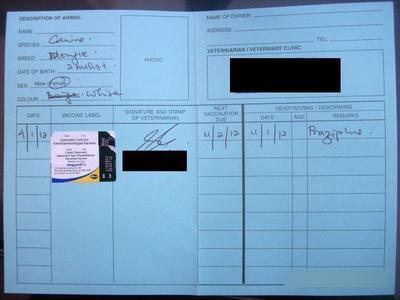 DESCRIPTION OF ANIMAL
NAME:
SPECIES: Canine.
BREED: Mongrel
DATE OF BIRTH: 2 mths +
SEX: Male / Female
COLOUR: Beige. White
PHOTO
NAME OF OWNER:
ADDRESS:
TEL:
VETERINARIAN / VETERINARY CLINIC
DATE
VACCINE LABEL
SIGNATURE AND STAMP
OF VETERINARIAN
NEXT
VACCINATION
DUE
HEARTWORM / DEWORMING
DATE
AGE
REMARKS
4/1/12
4/2/12
4/1/12